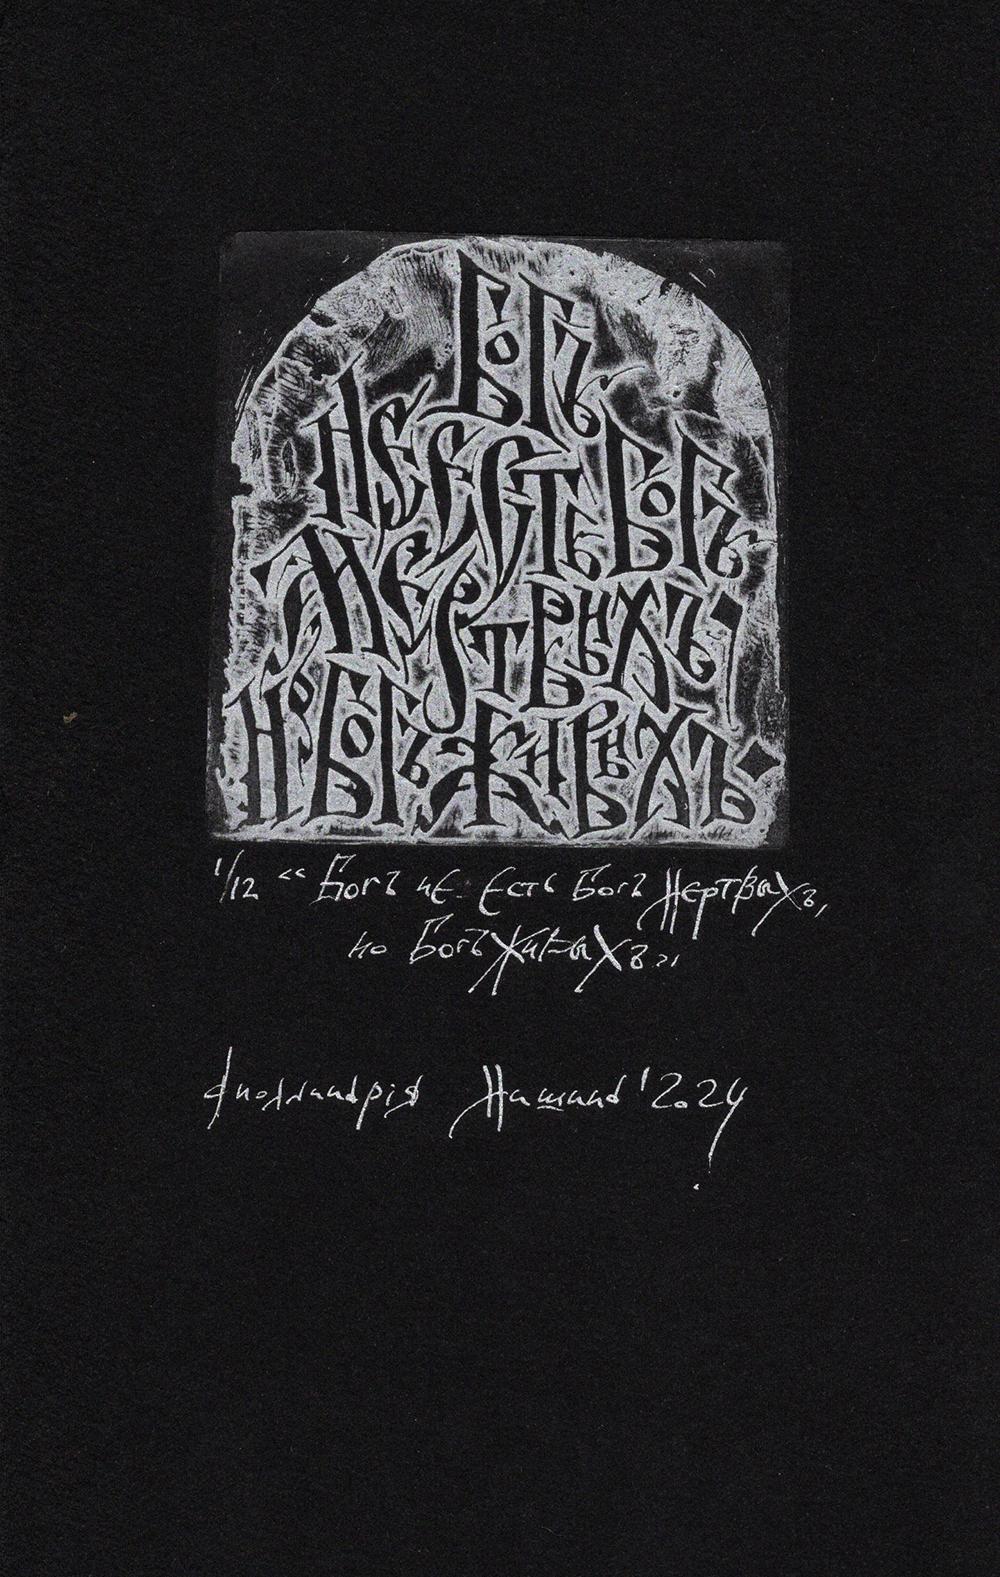 Богъ
не есть Богъ
Мертвыхъ,
но Богъ Живыхъ
1/12 “Богъ не есть Богъ Мертвыхъ,
но Богъ Живыхъ”
'2024